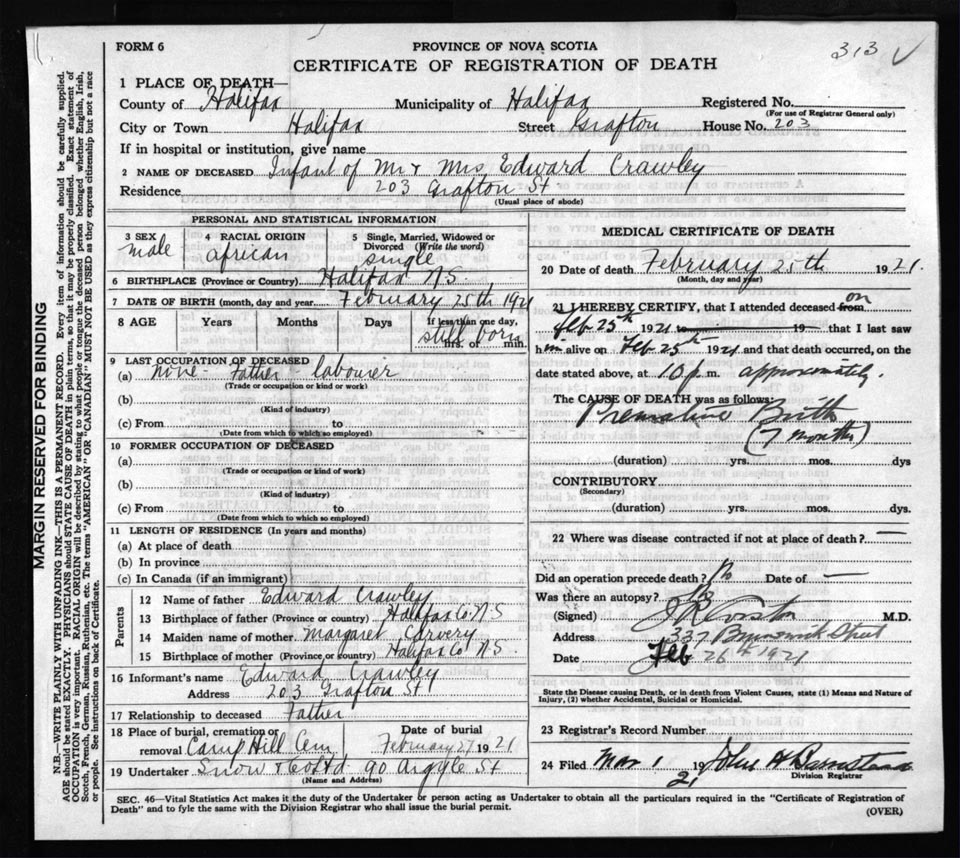 313 ✓
FORM 6
PROVINCE OF NOVA SCOTIA
CERTIFICATE OF REGISTRATION OF DEATH
1 PLACE OF DEATH—
County of Halifax Municipality of Halifax Registered No.
(For use of Registrar General only)
City or Town Halifax Street Grafton House No. 203
If in hospital or institution, give name
2 NAME OF DECEASED Infant of Mr & Mrs Edward Crawley
Residence 203 Grafton St
(Usual place of abode)
PERSONAL AND STATISTICAL INFORMATION
3 SEX male
4 RACIAL ORIGIN african
5 Single, Married, Widowed or Divorced (Write the word) single
6 BIRTHPLACE (Province or Country) Halifax N.S.
7 DATE OF BIRTH (month, day and year) February 25th 1921
8 AGE Years Months Days If less than one day, hrs. or min. still born
9 LAST OCCUPATION OF DECEASED
(a) None - Father - labourer
(Trade or occupation or kind of work)
(b)
(Kind of industry)
(c) From to
(Date from which to which so employed)
10 FORMER OCCUPATION OF DECEASED
(a)
(Trade or occupation or kind of work)
(b)
(Kind of industry)
(c) From to
(Date from which to which so employed)
11 LENGTH OF RESIDENCE (In years and months)
(a) At place of death
(b) In province
(c) In Canada (if an immigrant)
Parents
12 Name of father Edward Crawley
13 Birthplace of father (Province or country) Halifax Co N.S
14 Maiden name of mother Margaret Carvery
15 Birthplace of mother (Province or country) Halifax Co N.S.
16 Informant's name Edward Crawley
Address 203 Grafton St
17 Relationship to deceased Father
18 Place of burial, cremation or removal Camp Hill Cem. Date of burial February 27 1921
19 Undertaker Snow & Co Ltd 90 Argyle St
(Name and Address)
MEDICAL CERTIFICATE OF DEATH
20 Date of death February 25th 1921.
(Month, day and year)
21 I HEREBY CERTIFY, that I attended deceased from on
Feb 25th 1921 to 19 that I last saw
him alive on Feb 25th 1921 and that death occurred, on the
date stated above, at 10 p. m. approximately.
The CAUSE OF DEATH was as follows:
Premature Birth
(7 months)
(duration) yrs. mos. dys
CONTRIBUTORY
(Secondary)
(duration) yrs. mos. dys.
22 Where was disease contracted if not at place of death? —
Did an operation precede death? No Date of —
Was there an autopsy? No
(Signed) M.D.
Address 337 Brunswick Street
Date Feb 26th 1921
State the Disease causing Death, or in death from Violent Causes, state (1) Means and Nature of
Injury, (2) whether Accidental, Suicidal or Homicidal.
23 Registrar's Record Number
24 Filed Mar 1 1921 John H Barnstead
Division Registrar
SEC. 46—Vital Statistics Act makes it the duty of the Undertaker or person acting as Undertaker to obtain all the particulars required in the "Certificate of Registration of
Death" and to fyle the same with the Division Registrar who shall issue the burial permit.
(OVER)
MARGIN RESERVED FOR BINDING
N.B.—WRITE PLAINLY WITH UNFADING INK—THIS IS A PERMANENT RECORD. Every item of information should be carefully supplied.
AGE should be stated EXACTLY. PHYSICIANS should STATE CAUSE OF DEATH in plain terms, so that it may be properly classified. Exact statement of
OCCUPATION is very important. RACIAL ORIGIN will be described by stating to what people or tongue the deceased person belonged whether English, Irish,
Scotch, French, German, Russian, Ruthenian, etc. The terms "AMERICAN" or "CANADIAN" MUST NOT BE USED as they express citizenship but not a race
or people. See instructions on back of Certificate.